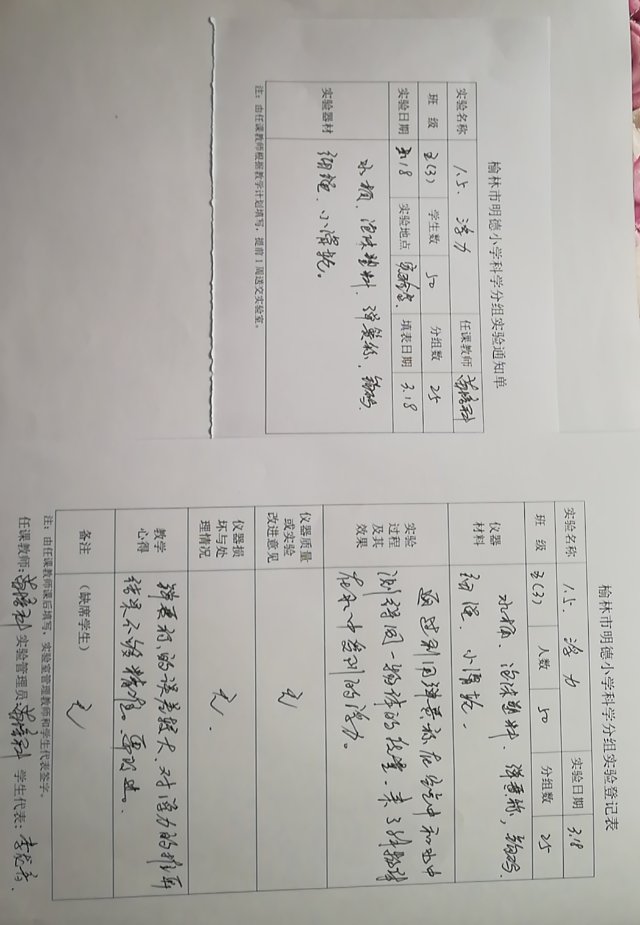 榆林市明德小学科学分组实验通知单
实验名称 1.5. 浮力 任课教师
班 级 五(3) 学生数 50 分组数 25
实验日期 3.18 实验地点 实验室. 填表日期 3.18
实验器材 水桶、泡沫塑料、弹簧称、钩码
细绳、小滑轮。
注:由任课教师根据教学计划填写,提前1周送交实验室。
榆林市明德小学科学分组实验登记表
实验名称 1.5. 浮力 实验日期 3.18
班 级 五(3) 人数 50 分组数 25
仪器材料 水桶、泡沫塑料、弹簧称,钩码
细绳、小滑轮.
实验过程及其效果 通过利用弹簧称在空气中和水中
测得同一物体的重量,来了解物体
在水中受到的浮力。
仪器质量或实验改进意见 无
仪器损坏与处理情况 无.
教学心得 弹簧称的误差较大、对浮力的推算
结果不够精准。要改进。
备注 (缺席学生) 无
注:由任课教师课后填写,实验室管理教师和学生代表签字。
任课教师: 实验管理员: 学生代表: